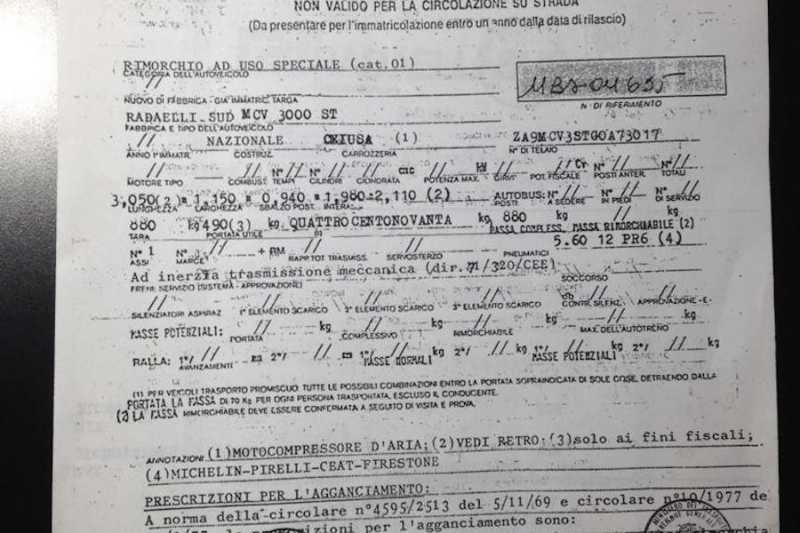 NON VALIDO PER LA CIRCOLAZIONE SU STRADA
(Da presentare per l'immatricolazione entro un anno dalla data di rilascio)
RIMORCHIO AD USO SPECIALE (cat.01)
CATEGORIA DELL'AUTOVEICOLO
//
NUOVO DI FABBRICA - GIA IMMATRIC. TARGA
N. DI RIFERIMENTO
RADAELLI-SUD MCV 3000 ST
FABBRICA E TIPO DELL'AUTOVEICOLO
// NAZIONALE CHIUSA (1) ZA9MCV3STG0A73017
ANNO 1ª IMMATR. COSTRUZ. CARROZZERIA N° DI TELAIO
MOTORE TIPO COMBUST. TEMPI CILINDRI CILINDRATA POTENZA MAX. GIRI/1' POT. FISCALE POSTI ANTER. TOTALI
3,050(2) = 1,150 = 0,940 = 1,980=2,110 (2) AUTOBUS: N° // N° // N° //
LUNGHEZZA LARGHEZZA SBALZO POST. INTERASSI POSTI A SEDERE IN PIEDI DI SERVIZIO
880 kg 490(3) kg QUATTROCENTONOVANTA kg 880 kg
TARA PORTATA UTILE MASSA COMPLESS. MASSA RIMORCHIABILE (2)
N° 1 N° // + RM // // 5.60 12 PR6 (4)
ASSI MARCE RAPP.TOT TRASMISS. SERVOSTERZO PNEUMATICI
Ad inerzia trasmissione meccanica (dir.71/320/CEE)
FRENI SERVIZIO (SISTEMA - APPROVAZIONE) SOCCORSO
SILENZIATORI ASPIRAZ 1° ELEMENTO SCARICO 2° ELEMENTO SCARICO 3° ELEMENTO SCARICO CONTR. SILENZ. APPROVAZIONE -E-
MASSE POTENZIALI: // kg // kg // kg // kg
PORTATA COMPLESSIVO RIMORCHIABILE MAX. DELL'AUTOTRENO
RALLA: 1°/ // 2°/ // 1°/ // kg 2°/ // kg 1°/ // kg 2°/ // kg
AVANZAMENTI MASSE NORMALI MASSE POTENZIALI
(1) PER VEICOLI TRASPORTO PROMISCUO: TUTTE LE POSSIBILI COMBINAZIONI ENTRO LA PORTATA SOPRAINDICATA DI SOLE COSE, DETRAENDO DALLA
PORTATA LA MASSA DI 70 Kg PER OGNI PERSONA TRASPORTATA, ESCLUSO IL CONDUCENTE.
(2) LA MASSA RIMORCHIABILE DEVE ESSERE CONFERMATA A SEGUITO DI VISITA E PROVA.
ANNOTAZIONI (1)MOTOCOMPRESSORE D'ARIA;(2)VEDI RETRO;(3)solo ai fini fiscali;
(4)MICHELIN-PIRELLI-CEAT-FIRESTONE
PRESCRIZIONI PER L'AGGANCIAMENTO:
A norma della circolare n°4595/2513 del 5/11/69 e circolare n°10/1977 de
per l'agganciamento sono: